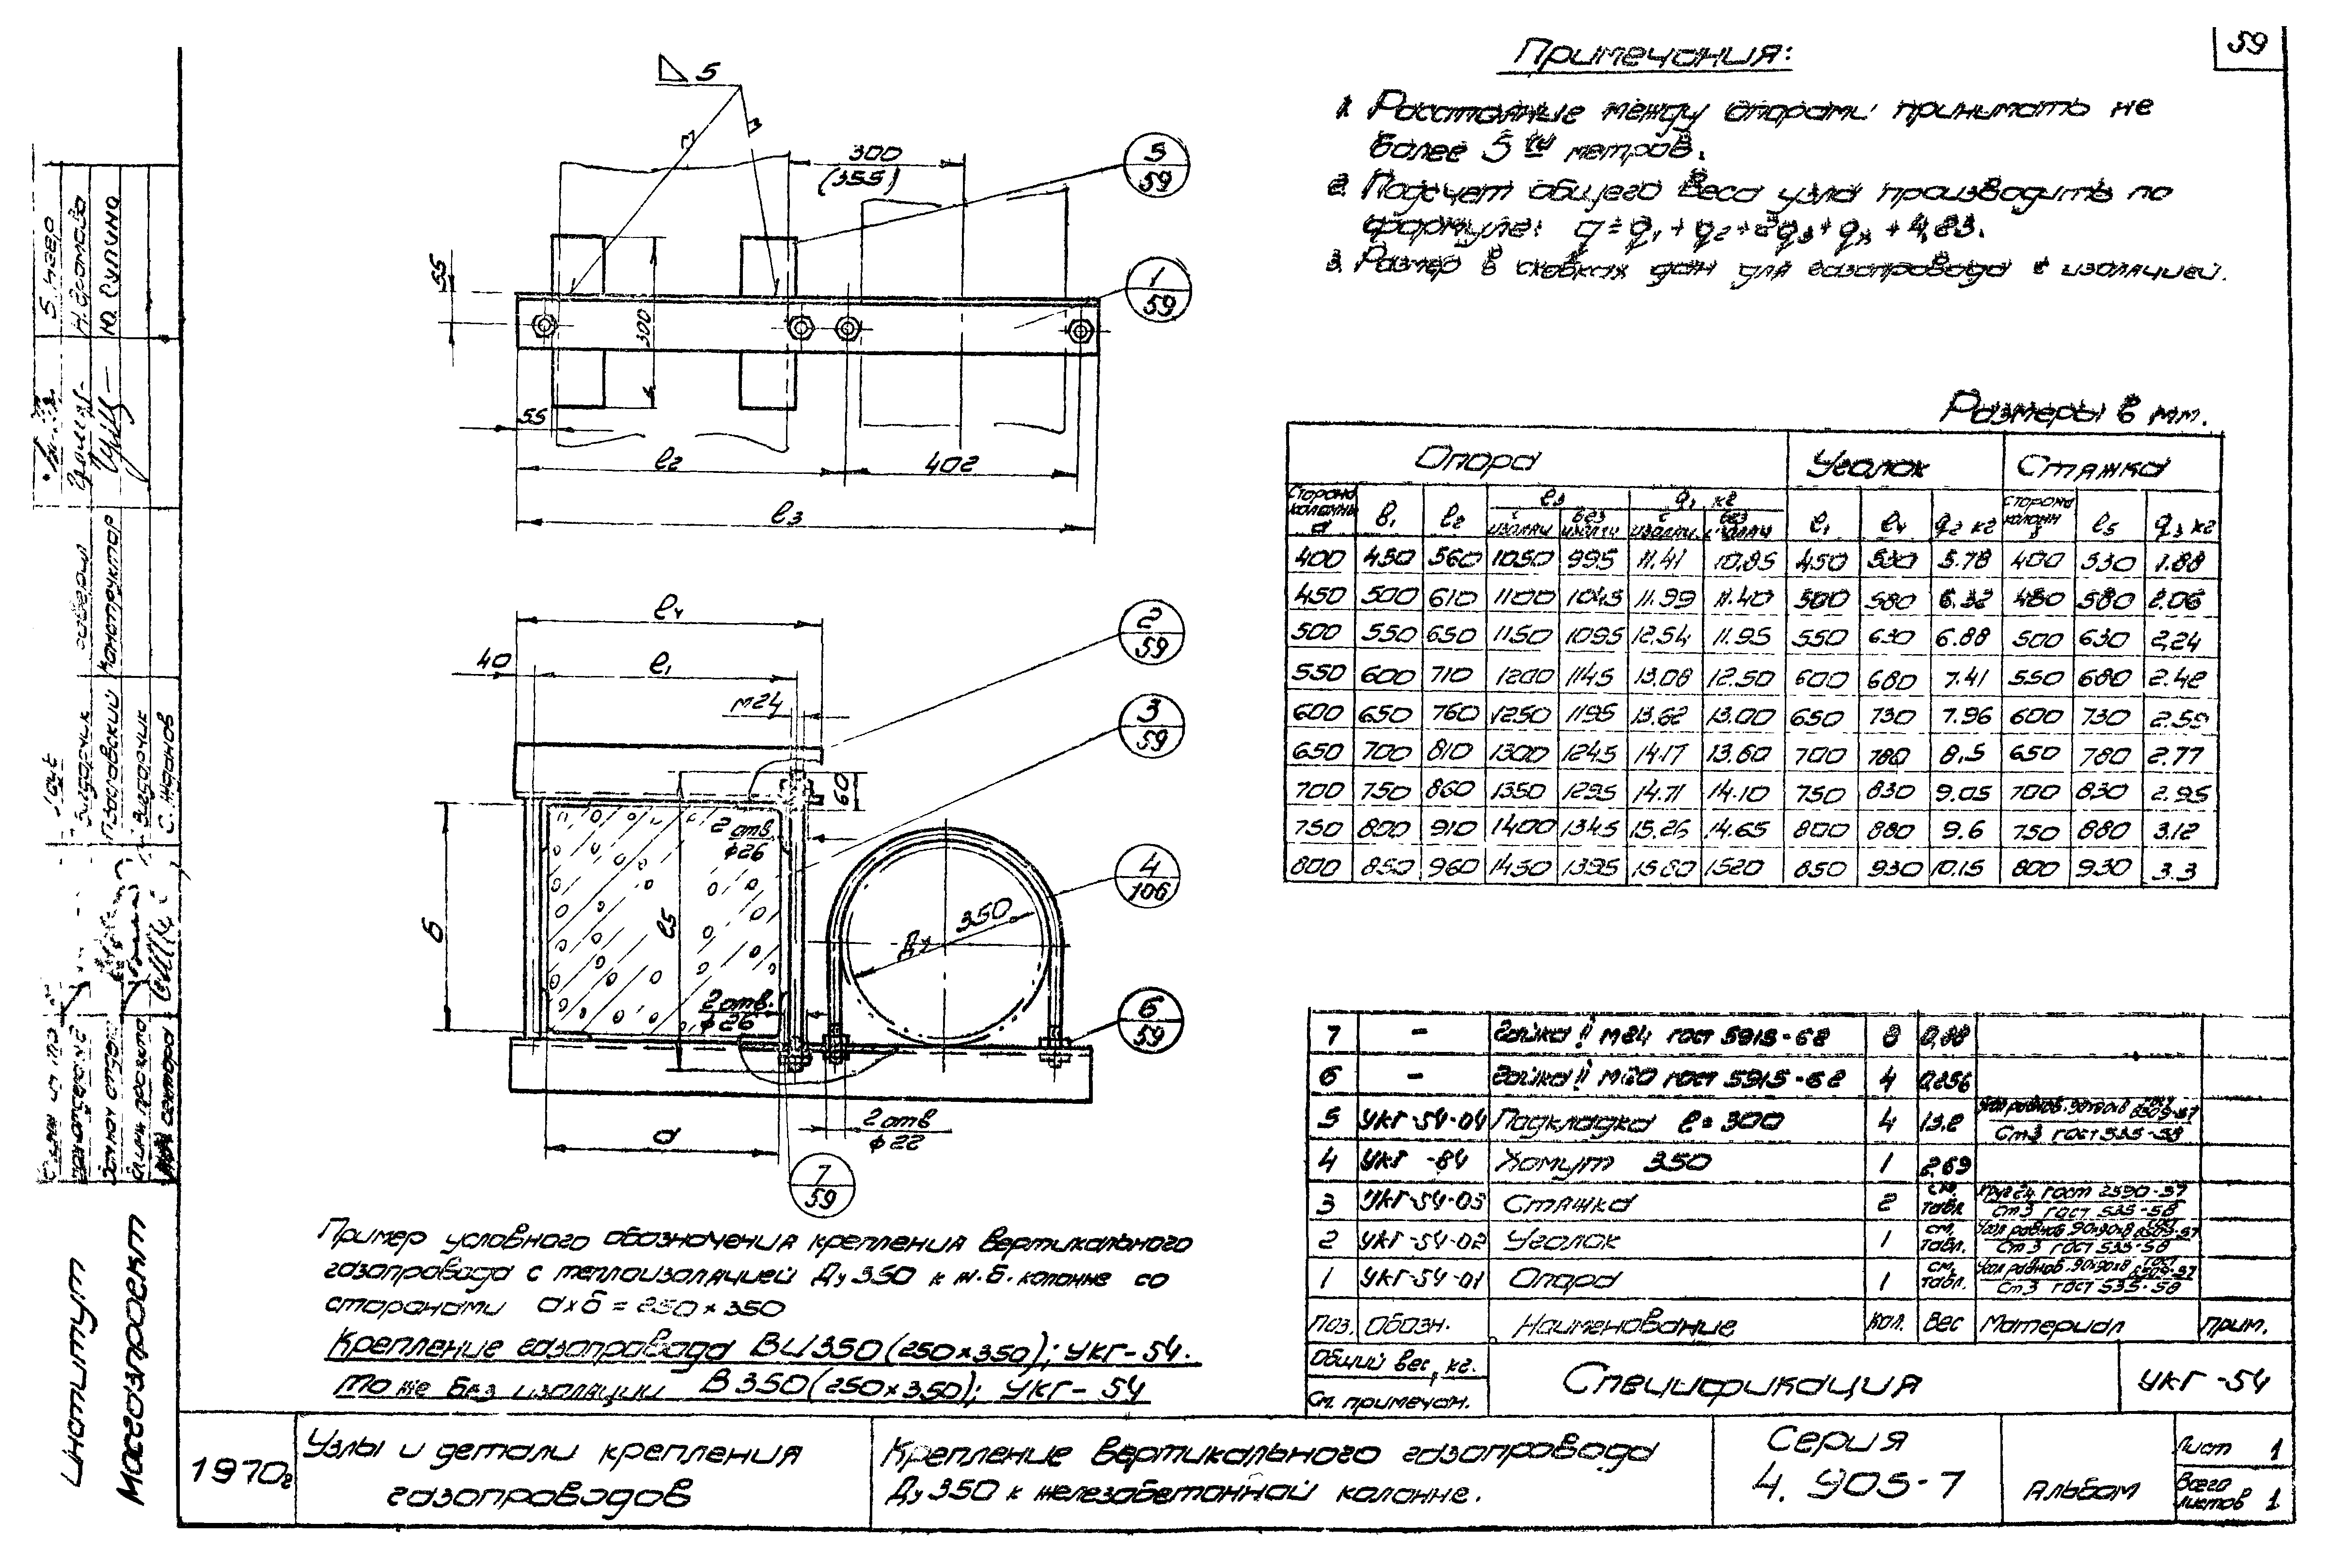 59
Примечания:
1. Расстояние между опорами принимать не
более 5ти метров.
2. Подсчет общего веса узла производить по
формуле: q = q1 + q2 + 2q3 + qх + 4,23.
3. Размер в скобках дан для газопровода с изоляцией.
5
300
(355)
5
59
1
59
55
300
55
l2
402
l3
l4
40
l1
М24
2
59
3
59
60
2 отв.
ф26
б
l5
Ду 350
4
106
2 отв.
ф26
6
59
2 отв
ф22
а
7
59
Размеры в мм.
Опора Уголок Стяжка
Сторона колонны а B1 l2 l3 q1 кг l1 l4 q2 кг сторона колонн б l5 q3 кг
с изоляц без изоляц с изоляц. без изоляц
400 450 560 1050 995 11.41 10.85 450 530 5.78 400 530 1.88
450 500 610 1100 1045 11.99 11.40 500 580 6.32 450 580 2.06
500 550 650 1150 1095 12.54 11.95 550 630 6.88 500 630 2,24
550 600 710 1200 1145 13.08 12.50 600 680 7.41 550 680 2.42
600 650 760 1250 1195 13.62 13.00 650 730 7.96 600 730 2.59
650 700 810 1300 1245 14.17 13.60 700 780 8,5 650 780 2.77
700 750 860 1350 1295 14.71 14.10 750 830 9.05 700 830 2.95
750 800 910 1400 1345 15.26 14.65 800 880 9.6 750 880 3.12
800 850 960 1450 1395 15.80 1520 850 930 10.15 800 930 3.3
7 – Гайка II М24 гост 5915-62 8 0,88
6 – Гайка II М20 гост 5915-62 4 0,256
5 УКГ-54-04 Подкладка l=300 4 13.2 Угол равноб. 90х90х8 гост 8509-57 Ст3 гост 535-58
4 УКГ -84 Хомут 350 1 2.69
3 УКГ-54-03 Стяжка 2 см. табл. Круг 24 гост 2590-57 Ст3 гост 535-58
2 УКГ-54-02 Уголок 1 см. табл. Угол равноб. 90х90х8 гост 8509-57 Ст3 гост 535-58
1 УКГ-54-01 Опора 1 см. табл. Угол равноб. 90х90х8 гост 8509-57 Ст3 гост 535-58
Поз. Обозн. Наименование Кол. Вес Материал Прим.
Общий вес, кг.
См. примечан.
Спецификация
УКГ-54
Пример условного обозначения крепления вертикального
газопровода с теплоизоляцией Ду 350 к ж.б. колонне со
сторонами ахб = 250×350
Крепление газопровода ВИ350 (250×350); УКГ-54.
То же без изоляции В350 (250×350); УКГ-54
1970г
Узлы и детали крепления
газопроводов
Крепление вертикального газопровода
Ду 350 к железобетонной колонне.
Серия
4.905-7
Альбом
Лист 1
Всего листов 1
Институт
Мосгазпроект
Н. Громова
Ю. Сулина
Конструктор
Заславский
С. Жданов